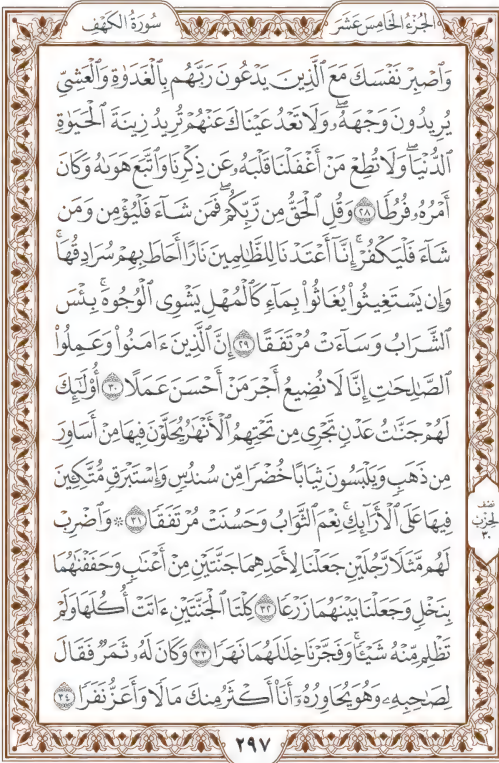 الجُزءُ الخَامِسَ عَشَرَ
سُورَةُ الكَهْفِ
وَٱصۡبِرۡ نَفۡسَكَ مَعَ ٱلَّذِينَ يَدۡعُونَ رَبَّهُم بِٱلۡغَدَوٰةِ وَٱلۡعَشِيِّ
يُرِيدُونَ وَجۡهَهُۥۖ وَلَا تَعۡدُ عَيۡنَاكَ عَنۡهُمۡ تُرِيدُ زِينَةَ ٱلۡحَيَوٰةِ
ٱلدُّنۡيَاۖ وَلَا تُطِعۡ مَنۡ أَغۡفَلۡنَا قَلۡبَهُۥ عَن ذِكۡرِنَا وَٱتَّبَعَ هَوَىٰهُ وَكَانَ
أَمۡرُهُۥ فُرُطٗا ٢٨ وَقُلِ ٱلۡحَقُّ مِن رَّبِّكُمۡۖ فَمَن شَآءَ فَلۡيُؤۡمِن وَمَن
شَآءَ فَلۡيَكۡفُرۡۚ إِنَّآ أَعۡتَدۡنَا لِلظَّٰلِمِينَ نَارًا أَحَاطَ بِهِمۡ سُرَادِقُهَاۚ
وَإِن يَسۡتَغِيثُواْ يُغَاثُواْ بِمَآءٖ كَٱلۡمُهۡلِ يَشۡوِي ٱلۡوُجُوهَۚ بِئۡسَ
ٱلشَّرَابُ وَسَآءَتۡ مُرۡتَفَقًا ٢٩ إِنَّ ٱلَّذِينَ ءَامَنُواْ وَعَمِلُواْ
ٱلصَّٰلِحَٰتِ إِنَّا لَا نُضِيعُ أَجۡرَ مَنۡ أَحۡسَنَ عَمَلًا ٣٠ أُوْلَٰٓئِكَ
لَهُمۡ جَنَّٰتُ عَدۡنٖ تَجۡرِي مِن تَحۡتِهِمُ ٱلۡأَنۡهَٰرُ يُحَلَّوۡنَ فِيهَا مِنۡ أَسَاوِرَ
مِن ذَهَبٖ وَيَلۡبَسُونَ ثِيَابًا خُضۡرٗا مِّن سُندُسٖ وَإِسۡتَبۡرَقٖ مُّتَّكِـِٔينَ
فِيهَا عَلَى ٱلۡأَرَآئِكِۚ نِعۡمَ ٱلثَّوَابُ وَحَسُنَتۡ مُرۡتَفَقٗا ٣١ ۞ وَٱضۡرِبۡ
لَهُم مَّثَلٗا رَّجُلَيۡنِ جَعَلۡنَا لِأَحَدِهِمَا جَنَّتَيۡنِ مِنۡ أَعۡنَٰبٖ وَحَفَفۡنَٰهُمَا
بِنَخۡلٖ وَجَعَلۡنَا بَيۡنَهُمَا زَرۡعٗا ٣٢ كِلۡتَا ٱلۡجَنَّتَيۡنِ ءَاتَتۡ أُكُلَهَا وَلَمۡ
تَظۡلِم مِّنۡهُ شَيۡـٔٗاۚ وَفَجَّرۡنَا خِلَٰلَهُمَا نَهَرٗا ٣٣ وَكَانَ لَهُۥ ثَمَرٞ فَقَالَ
لِصَٰحِبِهِۦ وَهُوَ يُحَاوِرُهُۥٓ أَنَا۠ أَكۡثَرُ مِنكَ مَالٗا وَأَعَزُّ نَفَرٗا ٣٤
نصف
الحزب
٣٠
٢٩٧